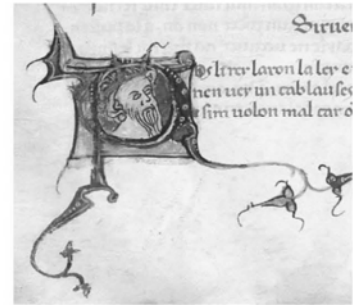 Siruen
os litrer laron la ler e
nen uer un cab lau seg
sim uolon mal car o